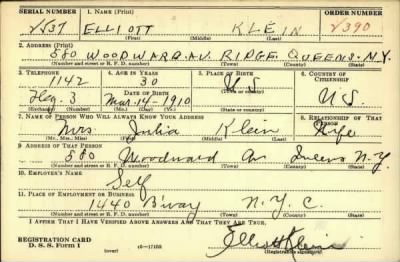 SERIAL NUMBER 1. NAME (Print) ORDER NUMBER
2537 ELLIOTT KLEIN 2390
(First) (Middle) (Last)
2. ADDRESS (Print)
580 WOODWARD AV. RIDGE. QUEENS. N.Y.
(Number and street or R. F. D. number) (Town) (County) (State)
3. TELEPHONE 4. AGE IN YEARS 5. PLACE OF BIRTH 6. COUNTRY OF CITIZENSHIP
1142 30 U S
Heg 3 Mar. 14-1910 U S.
(Exchange) (No.) (Mo.) (Day) (Yr.) (State or country)
7. NAME OF PERSON WHO WILL ALWAYS KNOW YOUR ADDRESS 8. RELATIONSHIP OF THAT PERSON
Mrs. Julia Klein Wife
(Mr., Mrs., Miss) (First) (Middle) (Last)
9. ADDRESS OF THAT PERSON
580 Woodward Av N.Y.
(Number and street or R. F. D. number) (Town) (County) (State)
10. EMPLOYER'S NAME
Self
11. PLACE OF EMPLOYMENT OR BUSINESS
1440 B'way N. Y. C.
(Number and street or R. F. D. number) (Town) (County) (State)
I AFFIRM THAT I HAVE VERIFIED ABOVE ANSWERS AND THAT THEY ARE TRUE.
REGISTRATION CARD
D. S. S. Form 1 (over) Elliott Klein
(Registrant's signature)